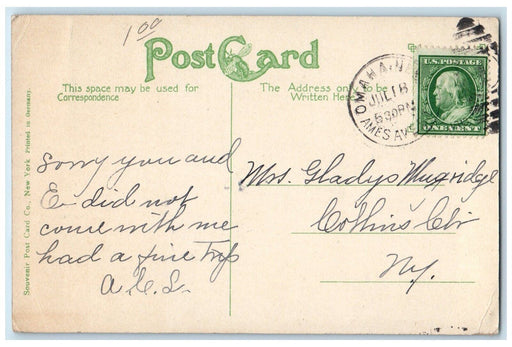 1 00
Post Card
This space may be used for
Correspondence
The Address only to be
Written Here
OMAHA, N
JUL 18
530PM
AMES AVE
U.S. POSTAGE
ONE CENT
Sorry you and
E. did not
come with me
had a fine Trip
A.C.L.
Mrs. Gladys Muxridge
Collins Ctr
Ny.
Souvenir Post Card Co., New York Printed in Germany.